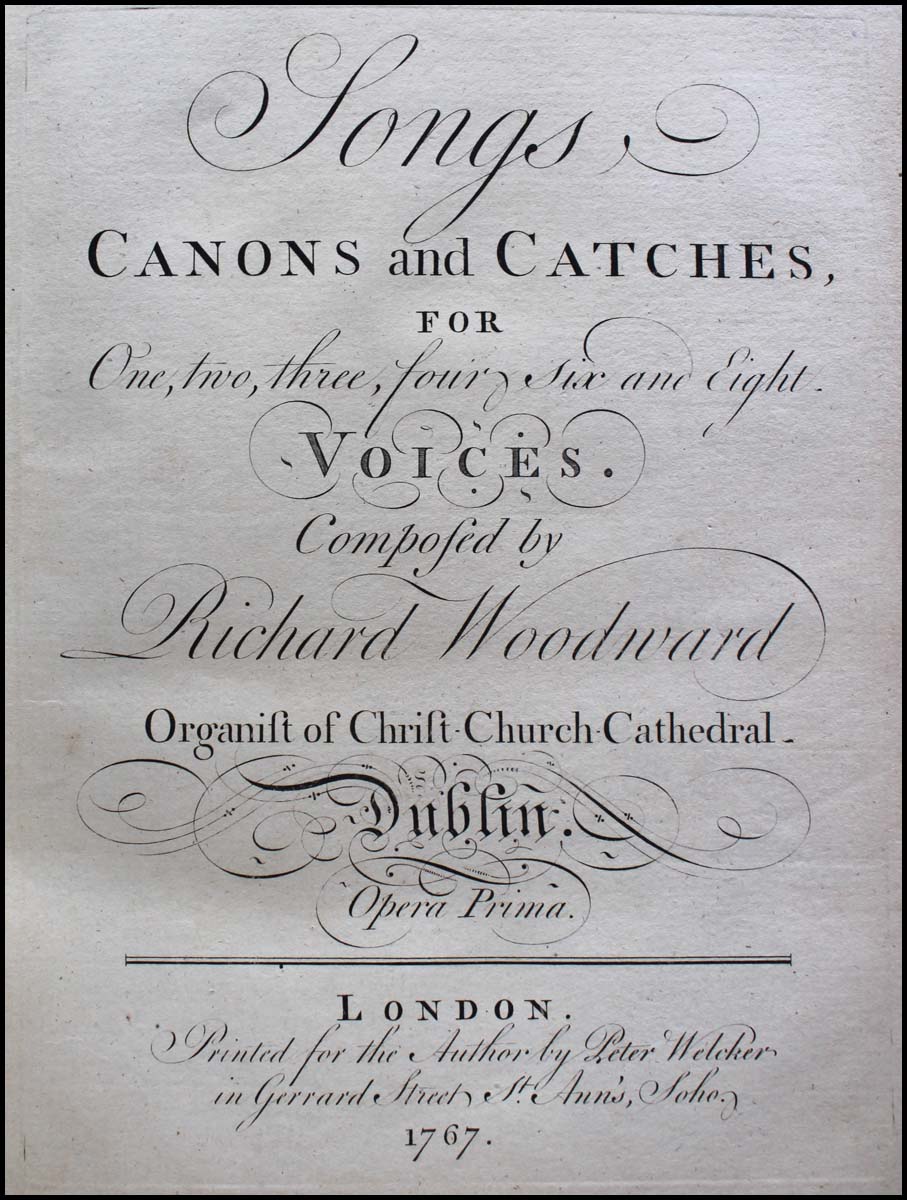 Songs
CANONS and CATCHES,
FOR
One, two, three, four, six and Eight
VOICES.
Compoſed by
Richard Woodward
Organiſt of Chriſt-Church-Cathedral
Dublin.
Opera Prima.
LONDON.
Printed for the Author by Peter Welcker
in Gerrard Street St. Ann's, Soho.
1767.